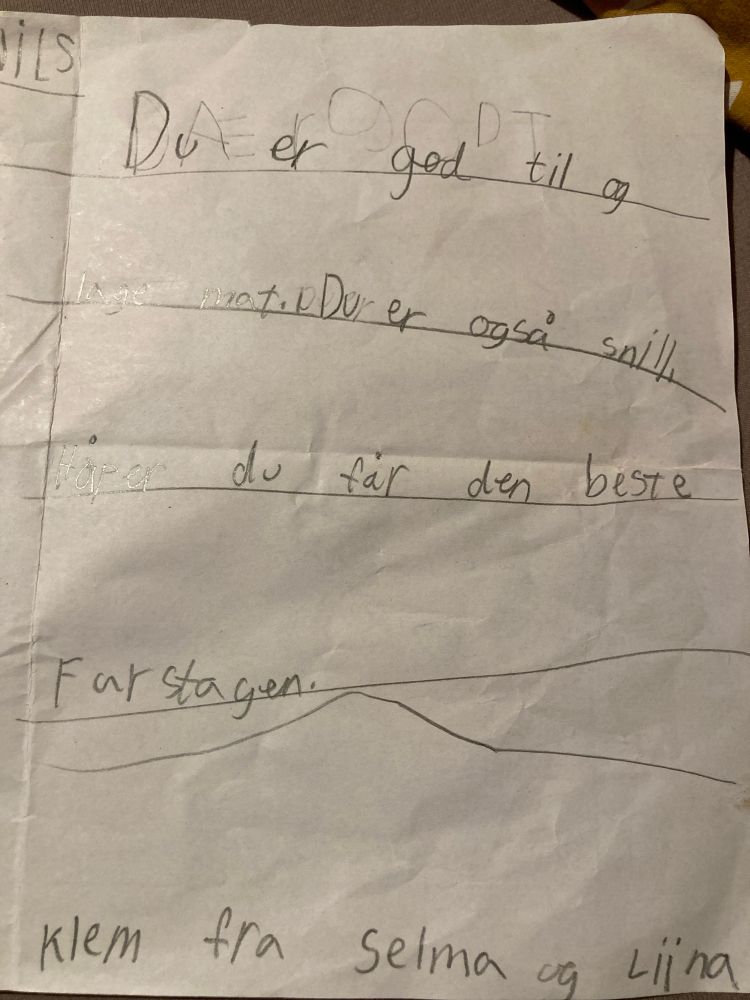 Du er god til og
lage mat. Du er også snill.
Håper du får den beste
Farstagen.
Klem fra Selma og Liina